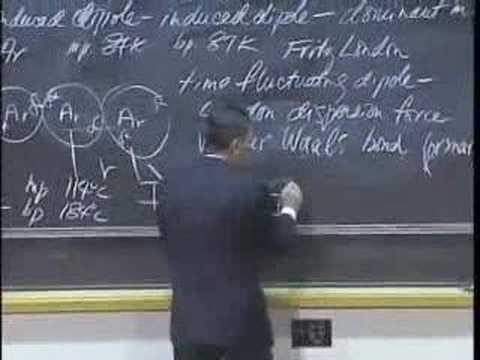 induced dipole – induced dipole – dominant in
Ar mp 84K bp 87K Fritz London
time fluctuating dipole –
London dispersion force
Waals bond format
Ar Ar Ar
r
mp 114°C
bp 184°C
I